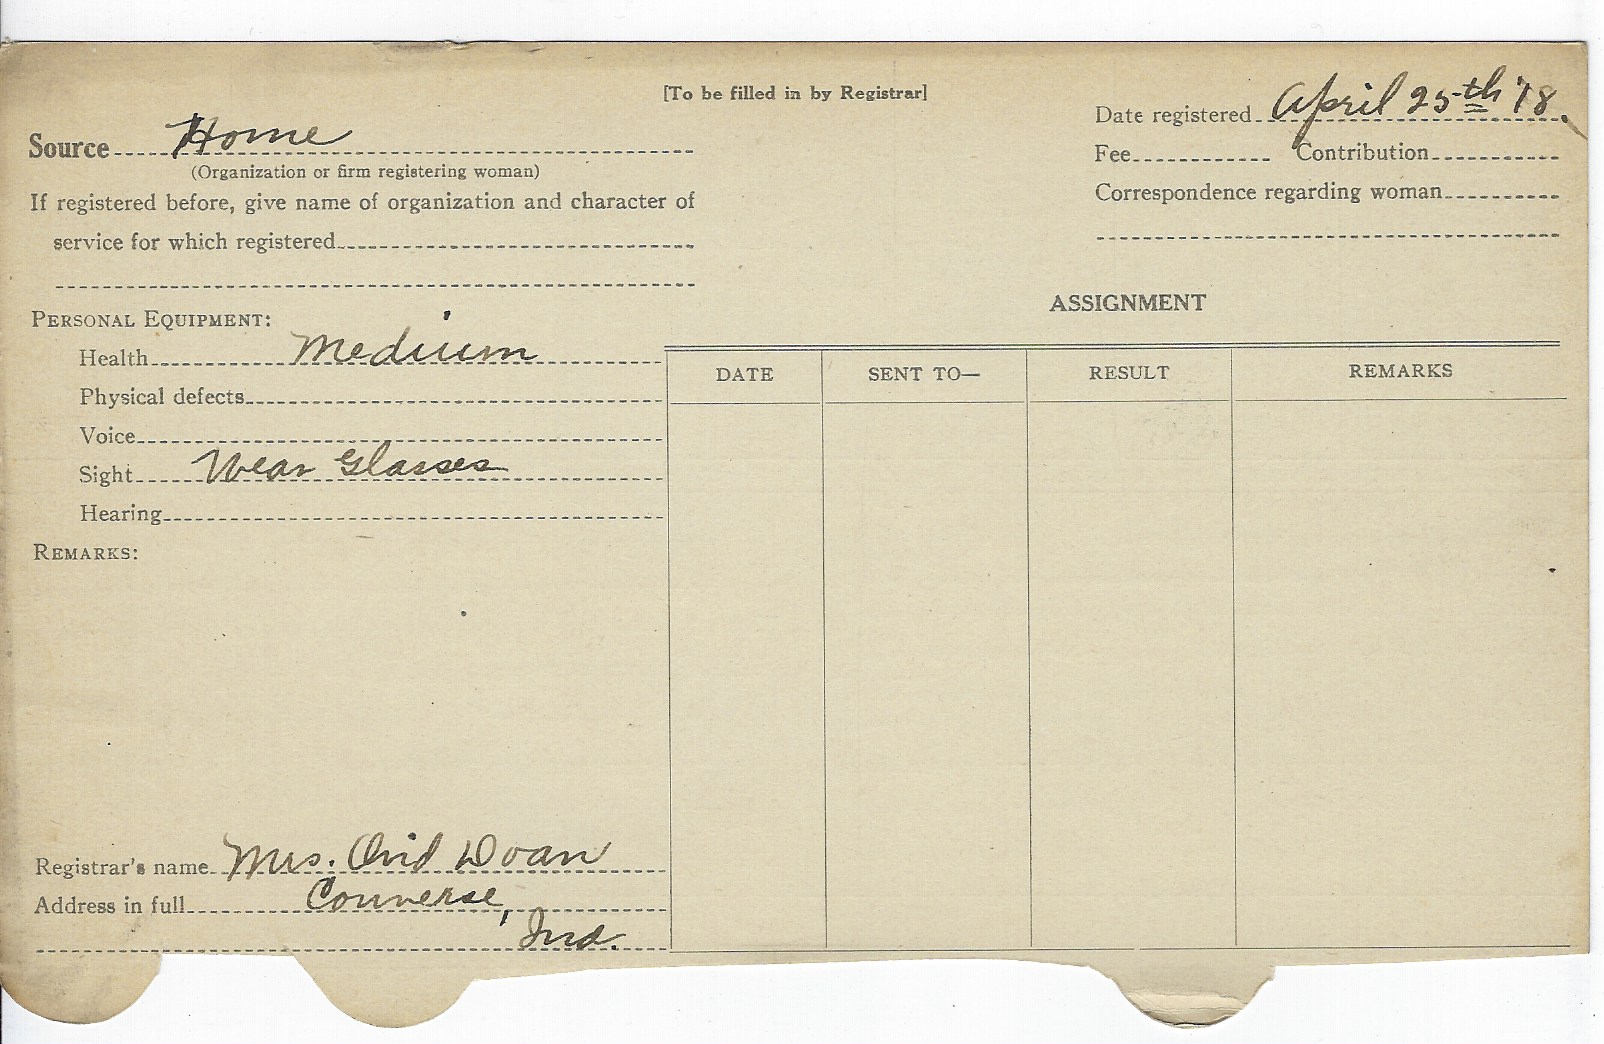 [To be filled in by Registrar]
Date registered April 25th '18.
Source Home
(Organization or firm registering woman)
Fee Contribution
If registered before, give name of organization and character of
service for which registered
Correspondence regarding woman
PERSONAL EQUIPMENT:
Health Medium
Physical defects
Voice
Sight Wear Glasses
Hearing
REMARKS:
ASSIGNMENT
DATE SENT TO— RESULT REMARKS
Registrar's name Mrs. Ovid Doan
Address in full Converse,
Ind.